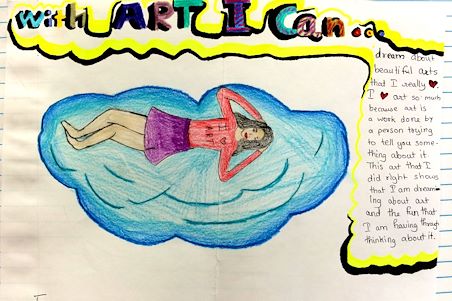 with ART I Can...
dream about
beautiful arts
that I really ♥.
I ♥ art so much
because art is
a work done by
a person trying
to tell you some-
thing about it.
This art that I
did right shows
that I am dream-
ing about art
and the fun that
I am having
thinking about it.